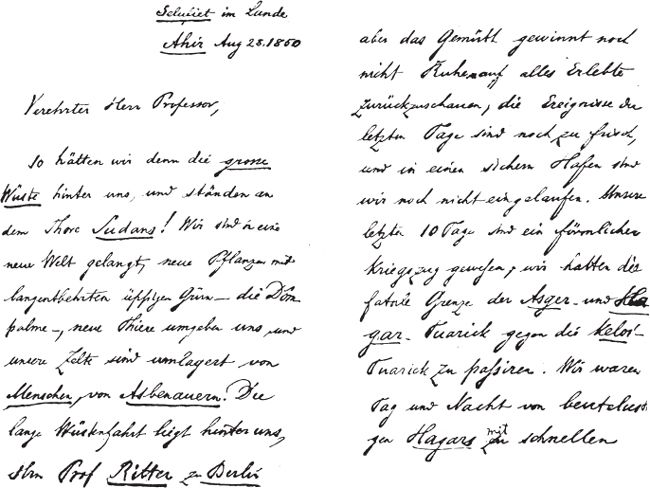 Selufiet im Lande
Ahir Aug 28. 1850
Verehrter Herr Professor,
So hätten wir denn die grosse
Wüste hinter uns, und ständen an
dem Thore Sudans! Wir sind in eine
neue Welt gelangt, neue Pflanzen mit
langentbehrten üppigen Grün — die Dôm
palme —, neue Thiere umgeben uns, und
unsere Zelte sind umlagert von
Menschen, von Asbenauern. Die
lange Wüstenfahrt liegt hinter uns,
Hrn Prof Ritter zu Berlin
aber das Gemüth gewinnt noch
nicht Ruhe auf alles Erlebte
zurückzuschauen, die Ereignisse der
letzten Tage sind noch zu frisch,
und in einen sichern Hafen sind
wir noch nicht eingelaufen. Unsere
letzten 10 Tage sind ein förmlicher
Kriegszug gewesen, wir hatten die
fatale Grenze der Asger- und Ha
gar- Tuarick gegen die Kelos-
Tuarick zu passiren. Wir waren
Tag und Nacht von beutelust
gen Hagars mit schnellen